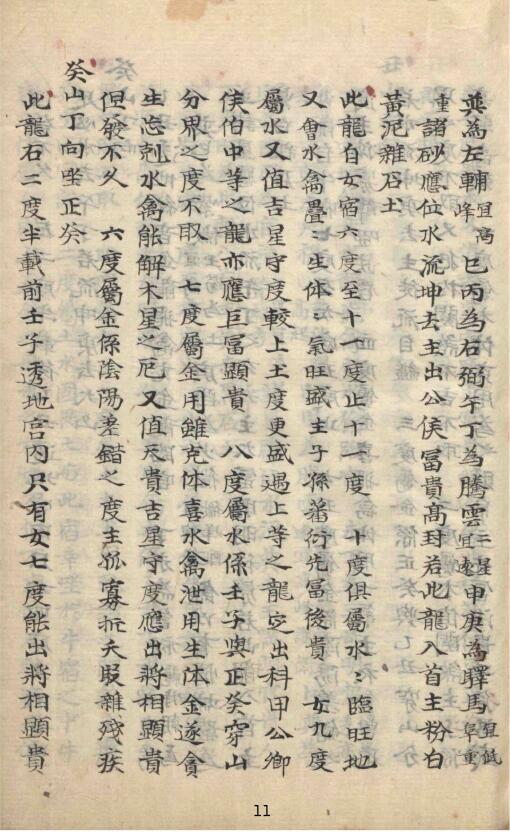 巽為左輔宜高峰巳丙為右弼午丁為騰雲三星宜遠申庚為驛馬宜低阜重
重諸砂應位水流坤去主出公侯冨貴高封若此龍入首主粉白
黃泥雜石土
此龍自女宿六度至十一度止十一度 十度俱屬水〻臨旺地
又會水禽疊〻生体〻氣旺盛主子孫蕃衍先冨後貴 女九度
屬水又值吉星守度較上土度更盛遇上等之龍定出科甲公卿
侯伯中等之龍亦應巨冨顯貴 八度屬水係壬子與正癸穿山
分界之度不取 七度屬金用雖克体喜水禽泄用生体金遂貪
生忘剋水禽能解木星之厄又值天貴吉星守度應出將相顯貴
但發不久 六度屬金係陰陽差錯之度主孤寡折夭瘢雜殘疾
癸山丁向坐正癸
此龍石二度半載前士子透地宮内只有女七度能出將相顯貴
11